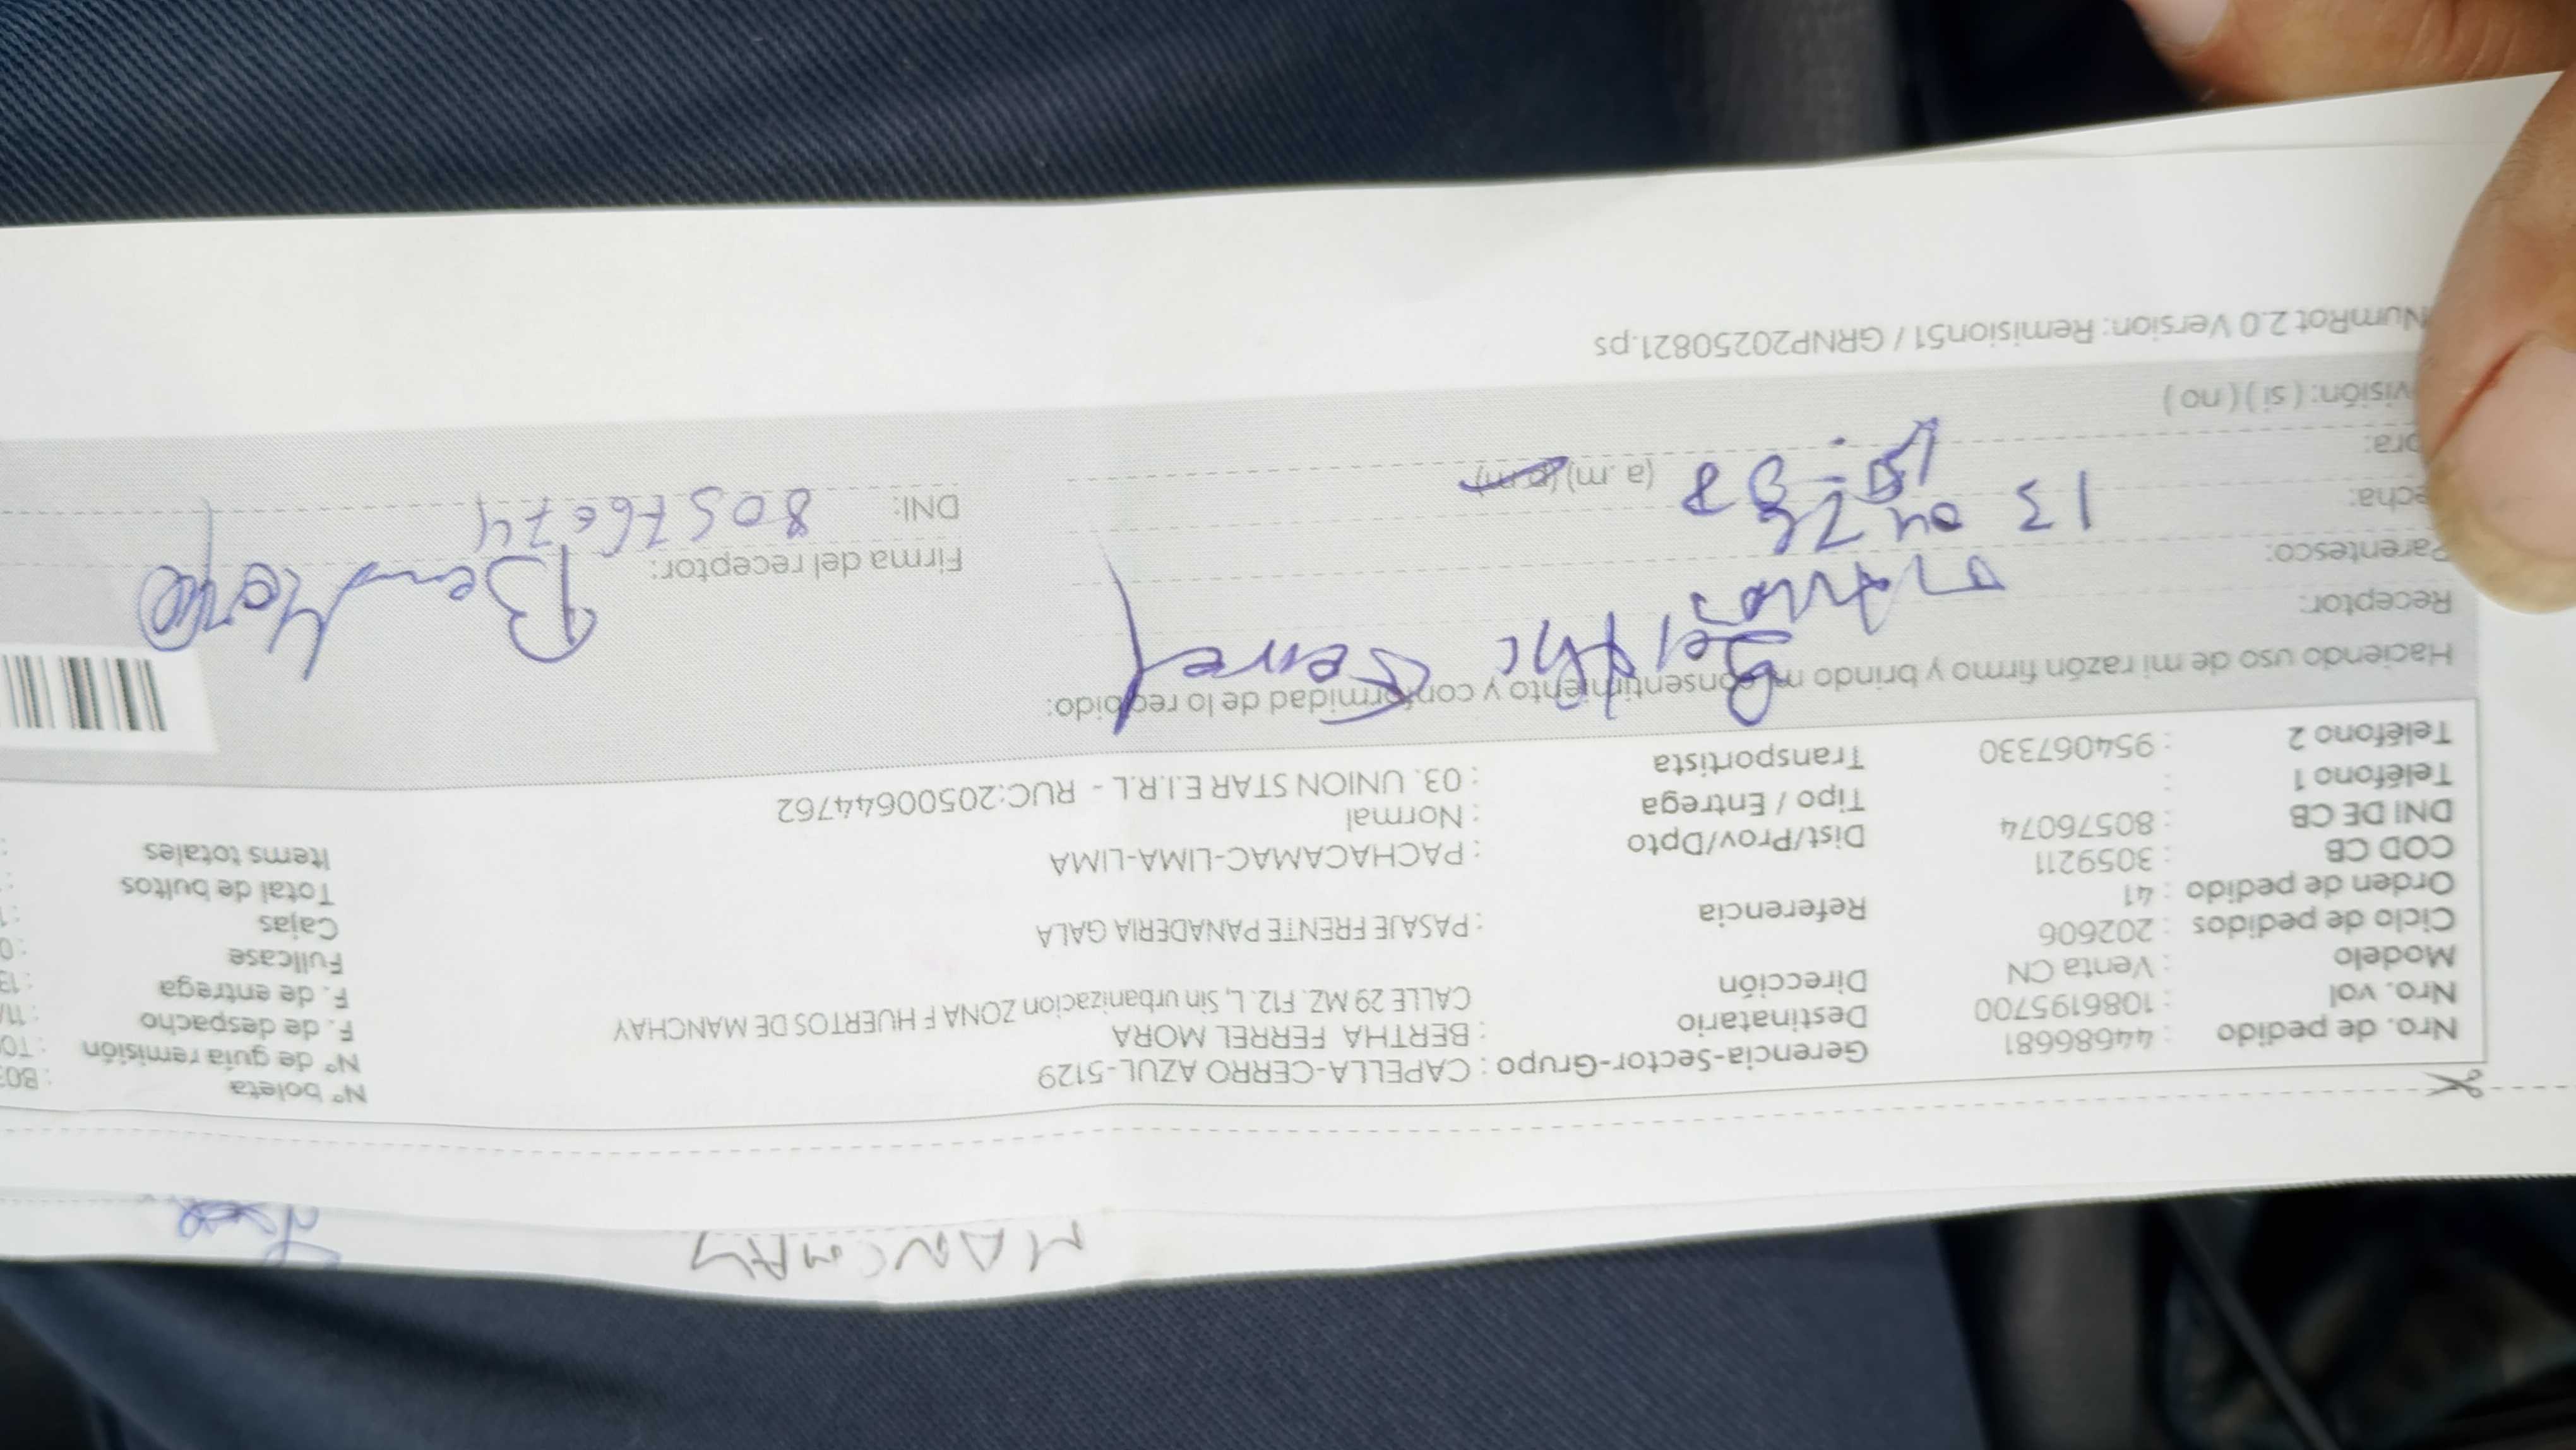 MANCHAY
Nro. de pedido : 44686681 Gerencia-Sector-Grupo : CAPELLA-CERRO AZUL-5129 N° boleta : B03
Nro. vol : 1086195700 Destinatario : BERTHA FERREL MORA N° de guía remisión
Modelo : Venta CN Dirección CALLE 29 MZ. F12. L, Sin urbanizacion ZONA F HUERTOS DE MANCHAY F. de despacho : 11/
Ciclo de pedidos : 202606 F. de entrega : 13
Orden de pedido : 41 Referencia : PASAJE FRENTE PANADERIA GALA Fullcase : 0
COD CB : 3059211 Cajas : 1
DNI DE CB : 80576074 Dist/Prov/Dpto : PACHACAMAC-LIMA-LIMA Total de bultos :
Teléfono 1 : Tipo / Entrega : Normal Items totales :
Teléfono 2 : 954067330 Transportista : 03. UNION STAR E.I.R.L - RUC:20500644762
Haciendo uso de mi razón firmo y brindo mi consentimiento y conformidad de lo recibido:
Receptor:
Parentesco: Firma del receptor:
echa: 13 04 26 DNI: 80576074
ora: (a .m) (p.m)
visión: ( si ) ( no )
NumRot 2.0 Version: Remision51 / GRNP20250821.ps